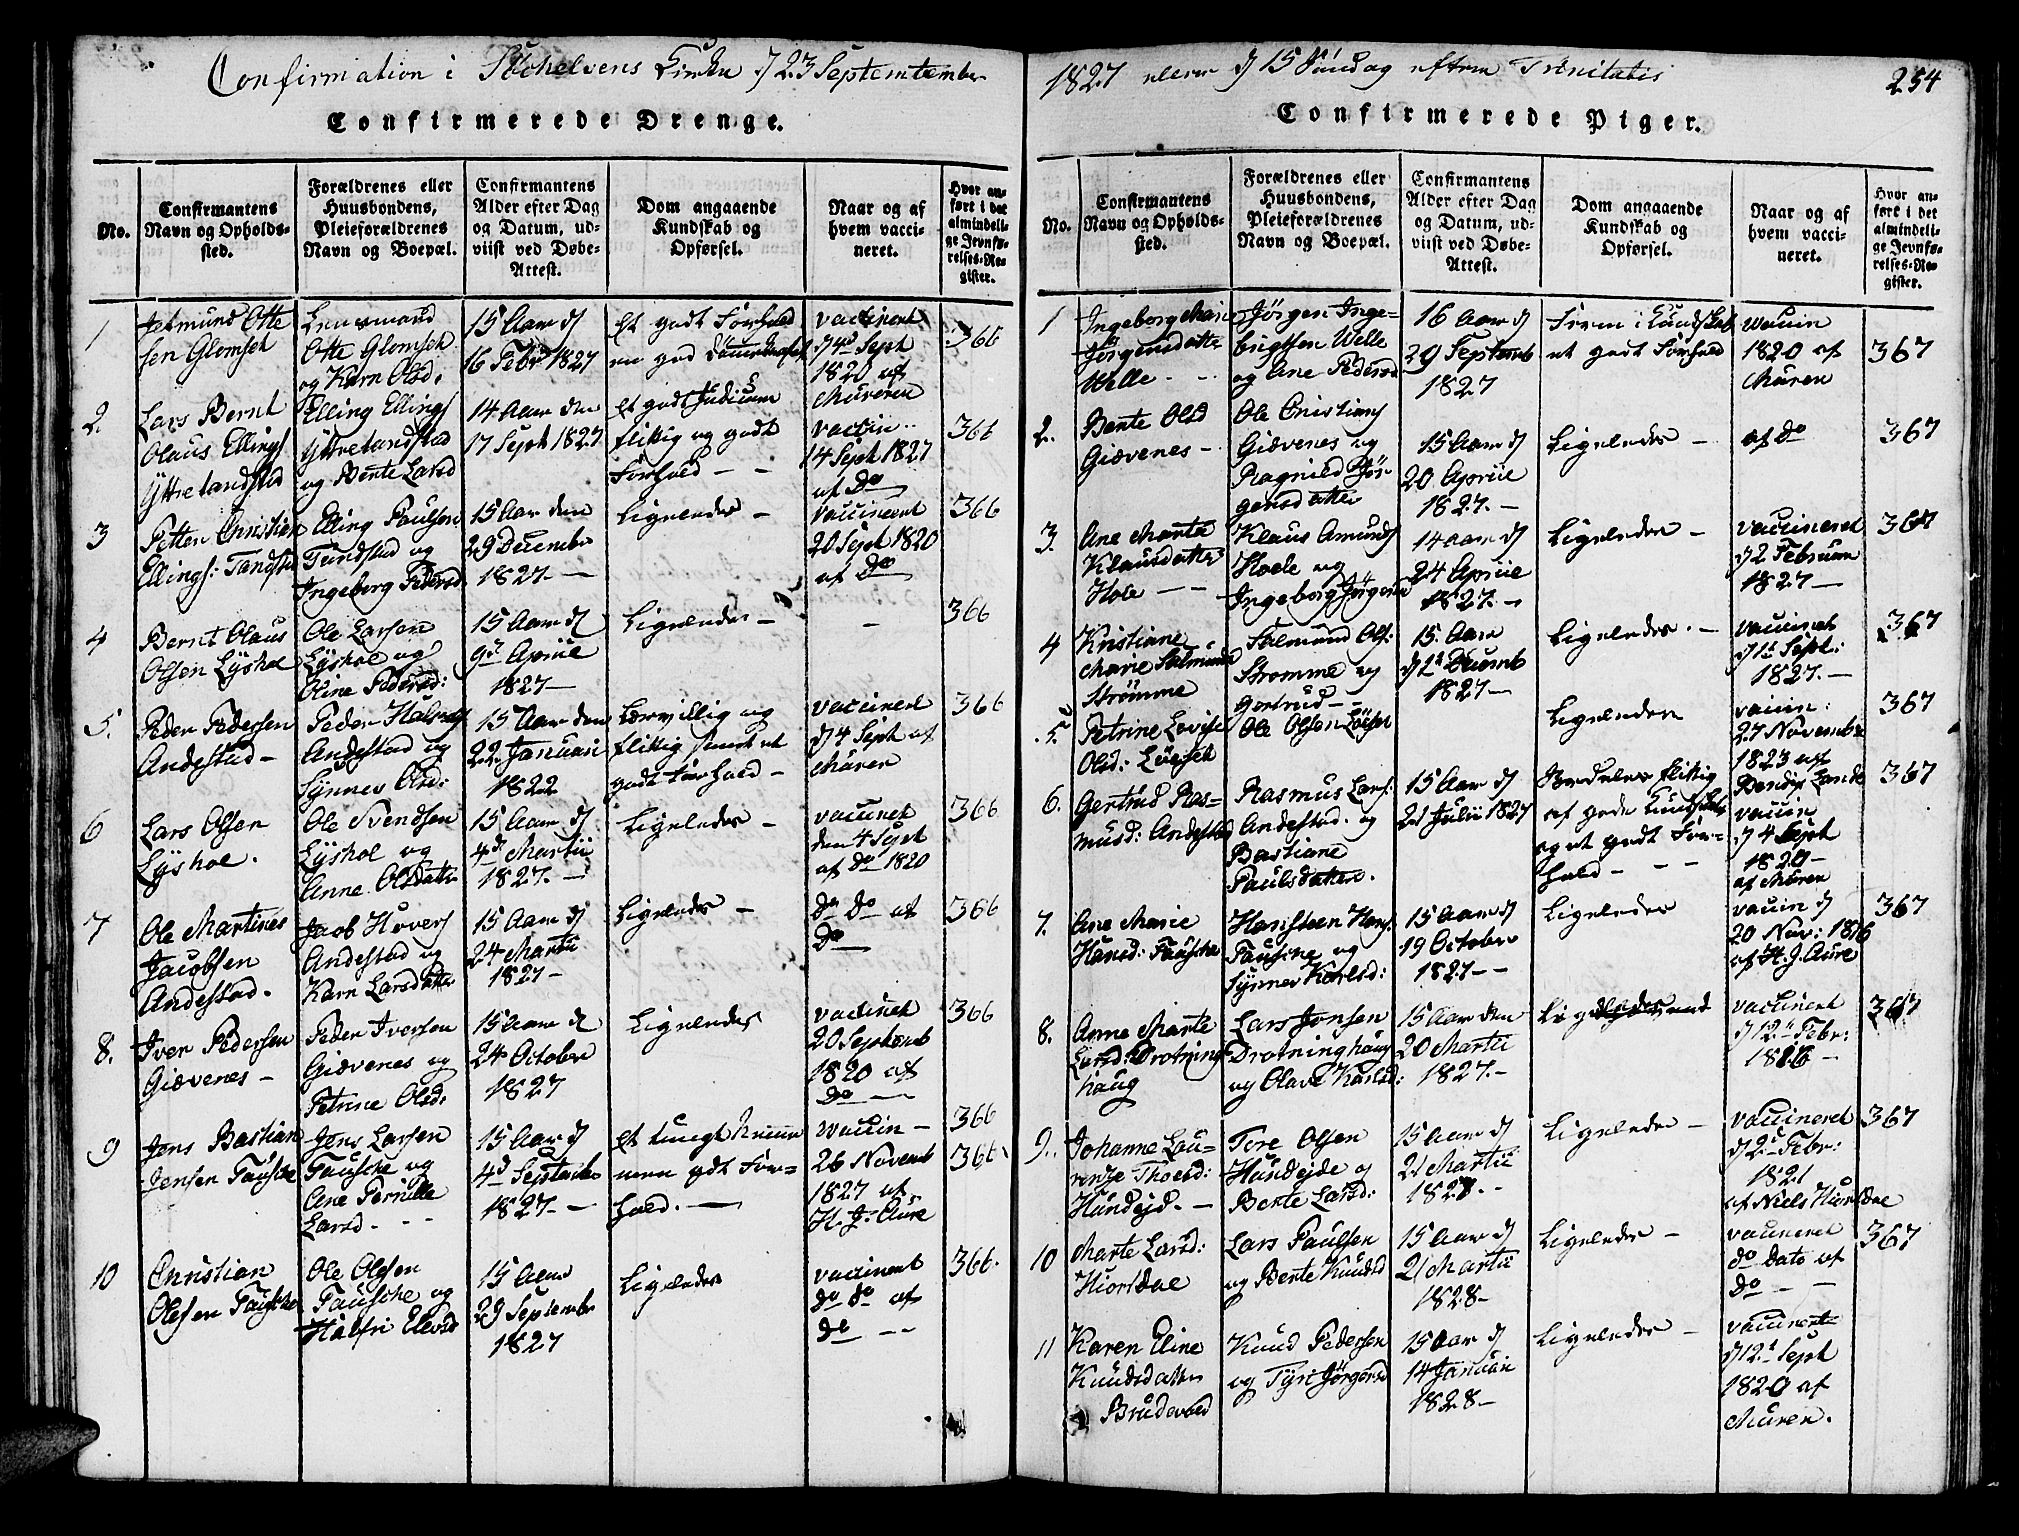 Confirmation i Kirke d 23 Septemtember
Confirmerede Drenge.
No.
Confirmantens Navn og Opholdssted.
Forældrenes eller Huusbondens, Pleieforældrenes Navn og Boepæl.
Confirmantens Alder efter Dag og Datum, udviist ved Døbe-Attest.
Dom angaaende Kundskab og Opførsel.
Naar og af hvem vaccineret.
Hvor anført i det almindelige Jevnførelses-Register.
1
Jetmund Otte
sen Glomset
Lensmand
Otte Glomset
og Karn Olsd:
15 Aar d
16 Febr 1827
et godt Forhold
en god
vaccinert
d 4d Sept
1820 af
Muren
366
2.
Lars Bernt
Olaus Ellings
Yttretandstad
Elling Ellings
Yttretandstad
og Bente Larsd
14 Aar den
17 Sept 1827
et godt Judicium
flittig og godt
Forhold - -
vaccin..
14 Sept 1827
af Do
366
3
Petter Christian
Ellings: Tandstad
Elling Paulsen
Tandstad og
Ingeborg Pedersd
15 Aar den
29 December
1827. -
Ligeledes -
vaccineret
20 Sept 1820
af Do
366
4
Bernt Olaus
Olsen Lyshol
Ole Larsen
Lyshol og
Oline Pedersd:
15 Aar d
9d April
1827 -
Ligeledes -
-
366
5.
Peder Pedersen
Andestad -
Peder Halsteens
Andestad og
Synnev Olsd:
15 Aar den
22 Januari
1822
Lærvillig og
flittig samt et
godt Forhold -
vaccineret
d 4 Sept af
Muren
366
6
Lars Olsen
Lyshol.
Ole Svendsen
Lyshol og
Anne Olsdatter
15 Aar d
4d Martii
1827. -
Ligeledes -
vaccinert
den 4 Sept
af Do 1820
366
7
Ole Martines
Jacobsen
Andestad.
Jacob Hovers
Andestad og
Karn Larsdatter
15 Aar d
24 Martii
1827 -
Ligeledes -
Do Do af
Do
366
8.
Iver Pedersen
Giævenes -
Peder Iversen
Giævenes og
Petrine Olsd:
15 Aar d
24 October
1827
Ligeledes
vaccinert
20 Septemb
1820 af
Do -
366
9
Jens Bastian
Jensen Fausche
Jens Larsen
Fausche og
Ane Pernille
Larsd. - -
15 Aar d
4d September
1827. -
et tungt Nemme
men godt For-
hold. -
vaccin -
26 Novemb
1827 af
H. J. Aure
366
366
10
Christian
Olesen Fausche
Ole Olesen
Fausche og
Halfri Elevsd
15 Aar
29 September
1827
Ligeledes
vaccinert
Do Do af
Do - -
366.
1827 eller d 15 Søndag efter Trinitatis
254
Confirmerede Piger.
No.
Confirmantens Navn og Opholdssted.
Forældrenes eller Huusbondens, Pleieforældrenes Navn og Boepæl.
Confirmantens Alder efter Dag og Datum, udviist ved Døbe-Attest.
Dom angaaende Kundskab og Opførsel.
Naar og af hvem vaccineret.
Hvor anført i det almindelige Jevnførelses-Register.
1
Ingeborg Mari
Jørgensdatter
Welle - -
Jørgen Inge-
brigtsen Welle
og Ane Pedersd
16 Aar d
29 Septemb
1827
Frem i Kundskab
et godt Forhold
vaccin
1820 af
Muren
367
2.
Bente Olsd
Giævenes -
Ole Cristians
Giævenes og
Ragnild Jør-
gensdatter
15 Aar d
20 April
1827. -
Ligeledes -
af Do
367
3.
Ane Marta
Klausdatter
Hole - -
Klaus Amunds
Hoele og
Ingeborg Jørgensd
14 Aar d
24 April
1827. -
Ligeledes -
vaccineret
d 2 Februar
1827 -
367
4
Kristiane
Marie Salmunds
Strømme
Salmund Ols:
Stromme og
Gertrud -
15. Aar
d 1t Decemb
1827 -
Ligeledes. -
vaccinert
d 1t Sept:
1827. -
367
5.
Petrine Lovise
Olsd: Løeset
Ole Olsen Løeset
Ligeledes
vaccin:
27 November
1823 af
367
6.
Gertrud Ras-
musd: Andestad
Rasmus Lars:
Andestad. og
Bastiane
Paulsdatter.
15 Aar d
21 Julii 1827
flittig
af gode Kundskab
og et godt For-
hold - - -
vaccin
d 4 Sept
1820 -
af Muren
367
7.
Ane Marie
Hansd: Fausche
Hansteen Hans:
Fausche og
Synnev Karlsd:
15 Aar d
19 October
1827 - -
Ligeledes
vaccin d
20 Nov: 1816
af H. J. Aure
367
8.
Anne Marte
Larsd: Drotning
haug
Lars Jonsen
Drotninghaug
og Olave Karlsd:
15 Aar den
20 Martii
1827. -
vaccinert
d 12t Febr:
1816 -
367
9..
Johanne Lau-
rentze Thoesd:
Hundejd. -
Tore Olsen
Hundejde og
Berte Larsd:
15 Aar d
21 Martii
1827. -
Ligeledes -
vaccineret
d 2t Febr:
1821
af Niels Hiortdal
367
10
Marte Larsd:
Hiortdal
Lars Paulsen
og Berte Knudsd
15 Aar d
21 Martii
1828 -
Ligeledes -
vaccineret
Do dato af
Do - -
367
11
Karen Eline
Knudsdatter
Brudevold
Knud Pedersen
og Tyri Jørgensd
15 Aar d
14 Januari
1828 -
Ligeledes -
vaccinert
d 12t Sept
1820 af
Muren.